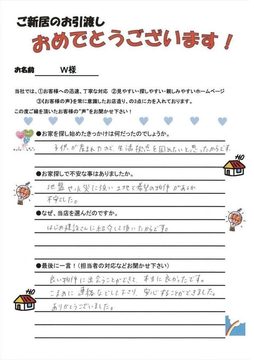 ご新居のお引渡し
おめでとうございます！
お名前 W様
当社では、①お客様への迅速、丁寧な対応 ②見やすい・探しやすい・親しみやすいホームページ
③《お客様の声》を常に意識したお店造り、の3点に力を入れております。
この度ご縁を頂いたお客様の"声"をお聞かせ下さい！
●お家を探し始めたきっかけは何だったのでしょうか。
子供が産まれたので生活拠点を固めたいと思ったからです。
●お家探しで不安な事はありましたか。
地盤や災に強い土地で希望の物件があるか
不安でした。
●なぜ、当店を選んだのですか。
はじめ建設さんに紹介して頂いたからです。
●最後に一言！（担当者の対応などお聞かせ下さい）
良い物件に出会うことができて、本当に良かったです。
こまめに連絡などして下さり、安心することができました。
ありがとうございました。